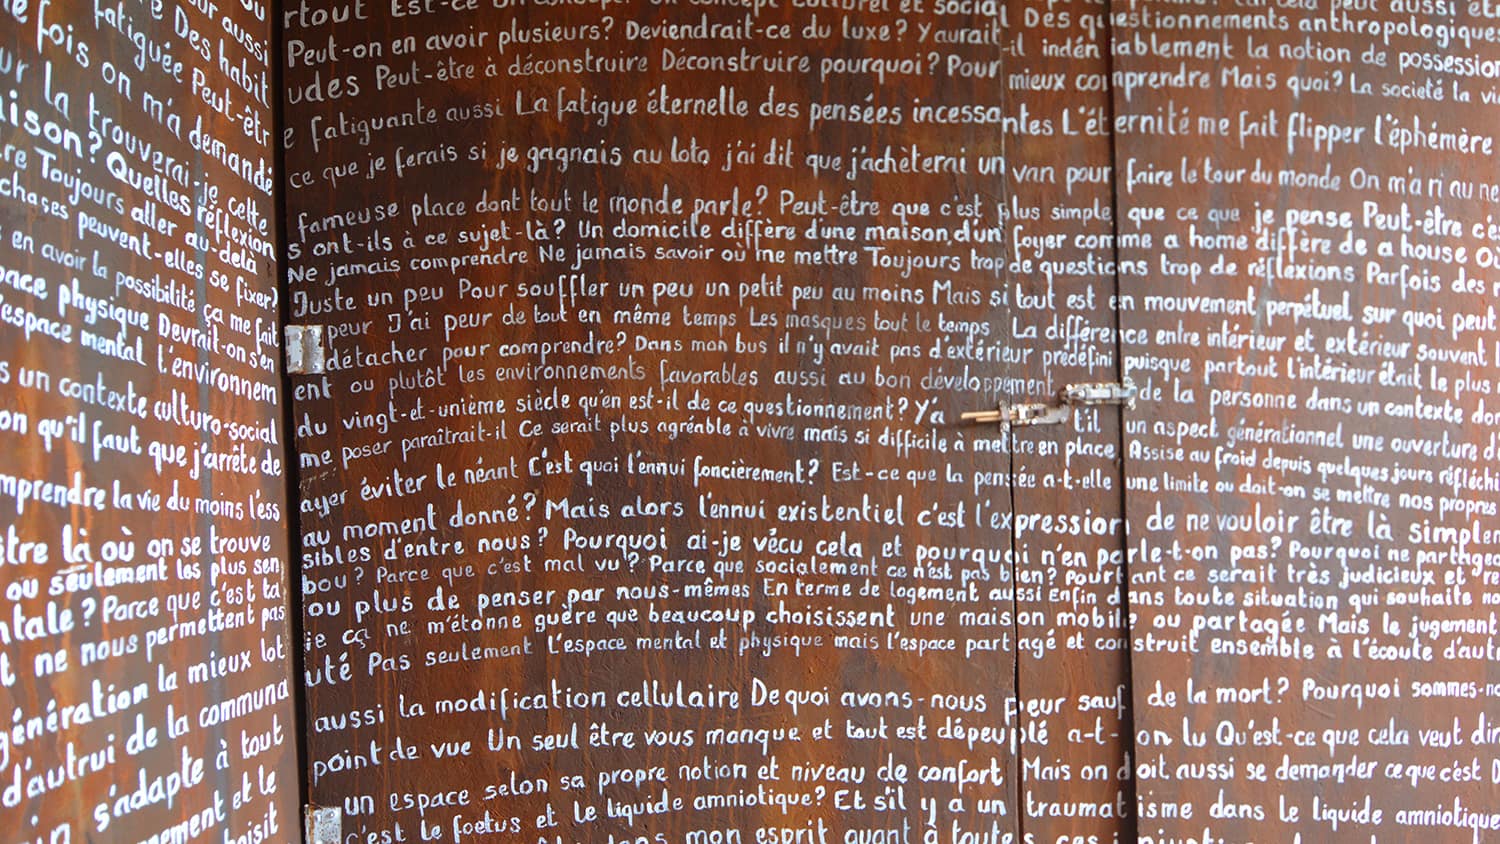 fois on m'a demandé
la trouverai-je cette
aison? Quelles réflexion
Toujours aller au-delà
chases peuvent-elles se fixer?
en avoir la possibilité ça me fait
pace physique Devrait-on s'en
espace mental l'environnem
un contexte culturo-social
on qu'il faut que j'arrête de
mprendre la vie du moins l'ess
être là où on se trouve
ou seulement les plus sen
ntale? Parce que c'est ta
ne nous permettent pas
génération la mieux lot
d'autrui de la communa
s'adapte à tout
nement et le
fatiguée Peut-êtr
Des habit
aussi
rtout Est-ce un concept culturel et social Des questionnements anthropologiques
Peut-on en avoir plusieurs? Deviendrait-ce du luxe? Y aurait-il indéniablement la notion de possession
udes Peut-être à déconstruire Déconstruire pourquoi? Pour mieux comprendre Mais quoi? La société la vie
e fatiguante aussi La fatigue éternelle des pensées incessantes L'éternité me fait flipper l'éphémère
ce que je ferais si je gagnais au loto j'ai dit que j'achèterai un van pour faire le tour du monde On m'a ri au ne
fameuse place dont tout le monde parle? Peut-être que c'est plus simple que ce que je pense Peut-être c'es
s'ont-ils à ce sujet-là? Un domicile diffère d'une maison, d'un foyer comme a home diffère de a house Où
Ne jamais comprendre Ne jamais savoir où me mettre Toujours trop de questions trop de réflexions Parfois des
Juste un peu Pour souffler un peu un petit peu au moins Mais si tout est en mouvement perpétuel sur quoi peut
peur J'ai peur de tout en même temps Les masques tout le temps La différence entre intérieur et extérieur souvent
détacher pour comprendre? Dans mon bus il n'y avait pas d'extérieur prédéfini puisque partout l'intérieur était le plus
ent ou plutôt les environnements favorables aussi au bon développement de la personne dans un contexte don
du vingt-et-unième siècle qu'en est-il de ce questionnement? Y'a til un aspect générationnel une ouverture d'
me poser paraîtrait-il Ce serait plus agréable à vivre mais si difficile à mettre en place Assise au froid depuis quelques jours réfléchi
ayer éviter le néant C'est quoi l'ennui foncièrement? Est-ce que la pensée a-t-elle une limite ou doit-on se mettre nos propres
au moment donné? Mais alors l'ennui existentiel c'est l'expression de ne vouloir être là simplem
sibles d'entre nous? Pourquoi ai-je vécu cela et pourquoi n'en parle-t-on pas? Pourquoi ne partageo
bou? Parce que c'est mal vu? Parce que socialement ce n'est pas bien? Pourtant ce serait très judicieux et re
ou plus de penser par nous-mêmes En terme de logement aussi Enfin dans toute situation qui souhaite no
je ça ne m'étonne guère que beaucoup choisissent une maison mobile ou partagée Mais le jugement
uté Pas seulement l'espace mental et physique mais l'espace partagé et construit ensemble à l'écoute d'autr
aussi la modification cellulaire De quoi avons-nous peur sauf de la mort? Pourquoi sommes-no
point de vue Un seul être vous manque et tout est dépeuplé a-t-on lu Qu'est-ce que cela veut dir
un espace selon sa propre notion et niveau de confort Mais on doit aussi se demander ce que c'est
c'est le foetus et le liquide amniotique? Et s'il y a un traumatisme dans le liquide amniotique
dans mon esprit quant à toutes ces